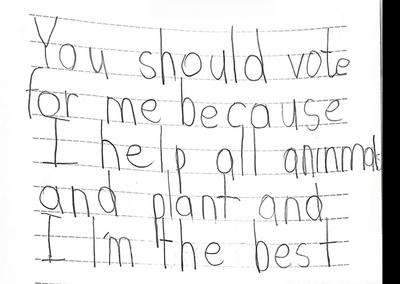 You should vote
for me because
I help all aninmals
and plant and
I I'm the best